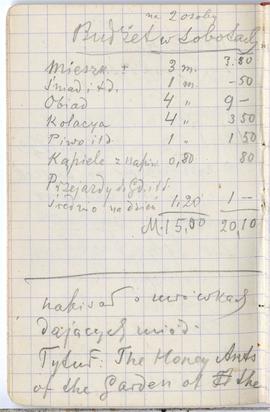 na 2 osoby
Budżet w Sobotach
Mieszk. + 3 m. 3.80
Śniad. itd. 1 m. -50
Obiad 4 " 9 -
Kolacya 4 " 3 50
Piwo itd 1 " 1 50
Kąpiele z napiw. 0,80 80
Przejazdy do Gd. itd.
Średnio na dzień 1.20 1 -
M. 15,00 20,10
napisał o mrówkach
dających miód.
Tytuł: The Honey Ants
of the Garden of the